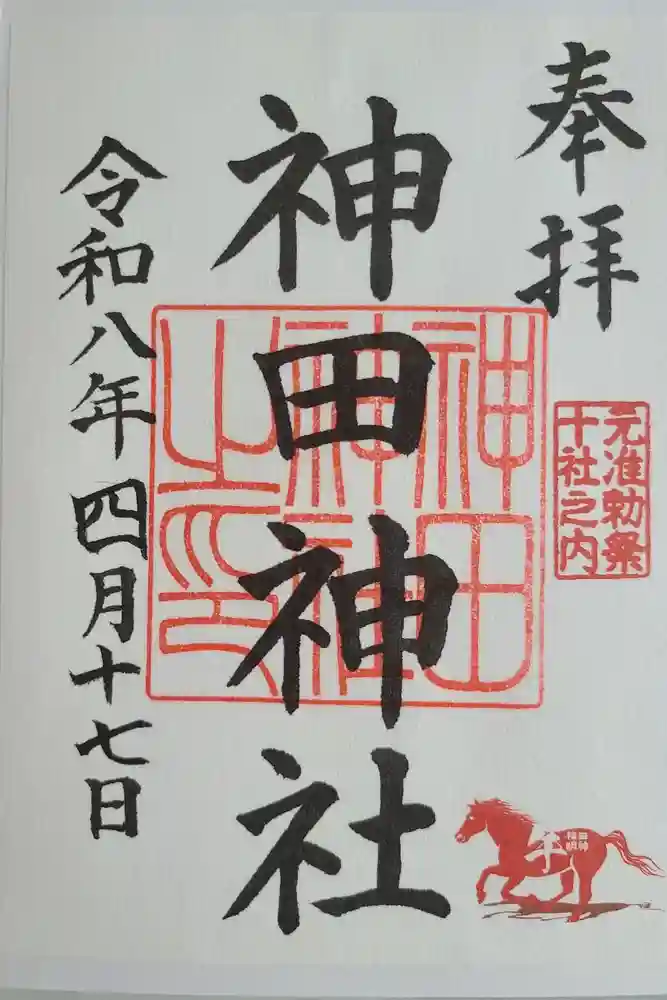 奉拝
元准勅祭
十社之内
神田神社
神田
神社
之印
令和八年四月十七日